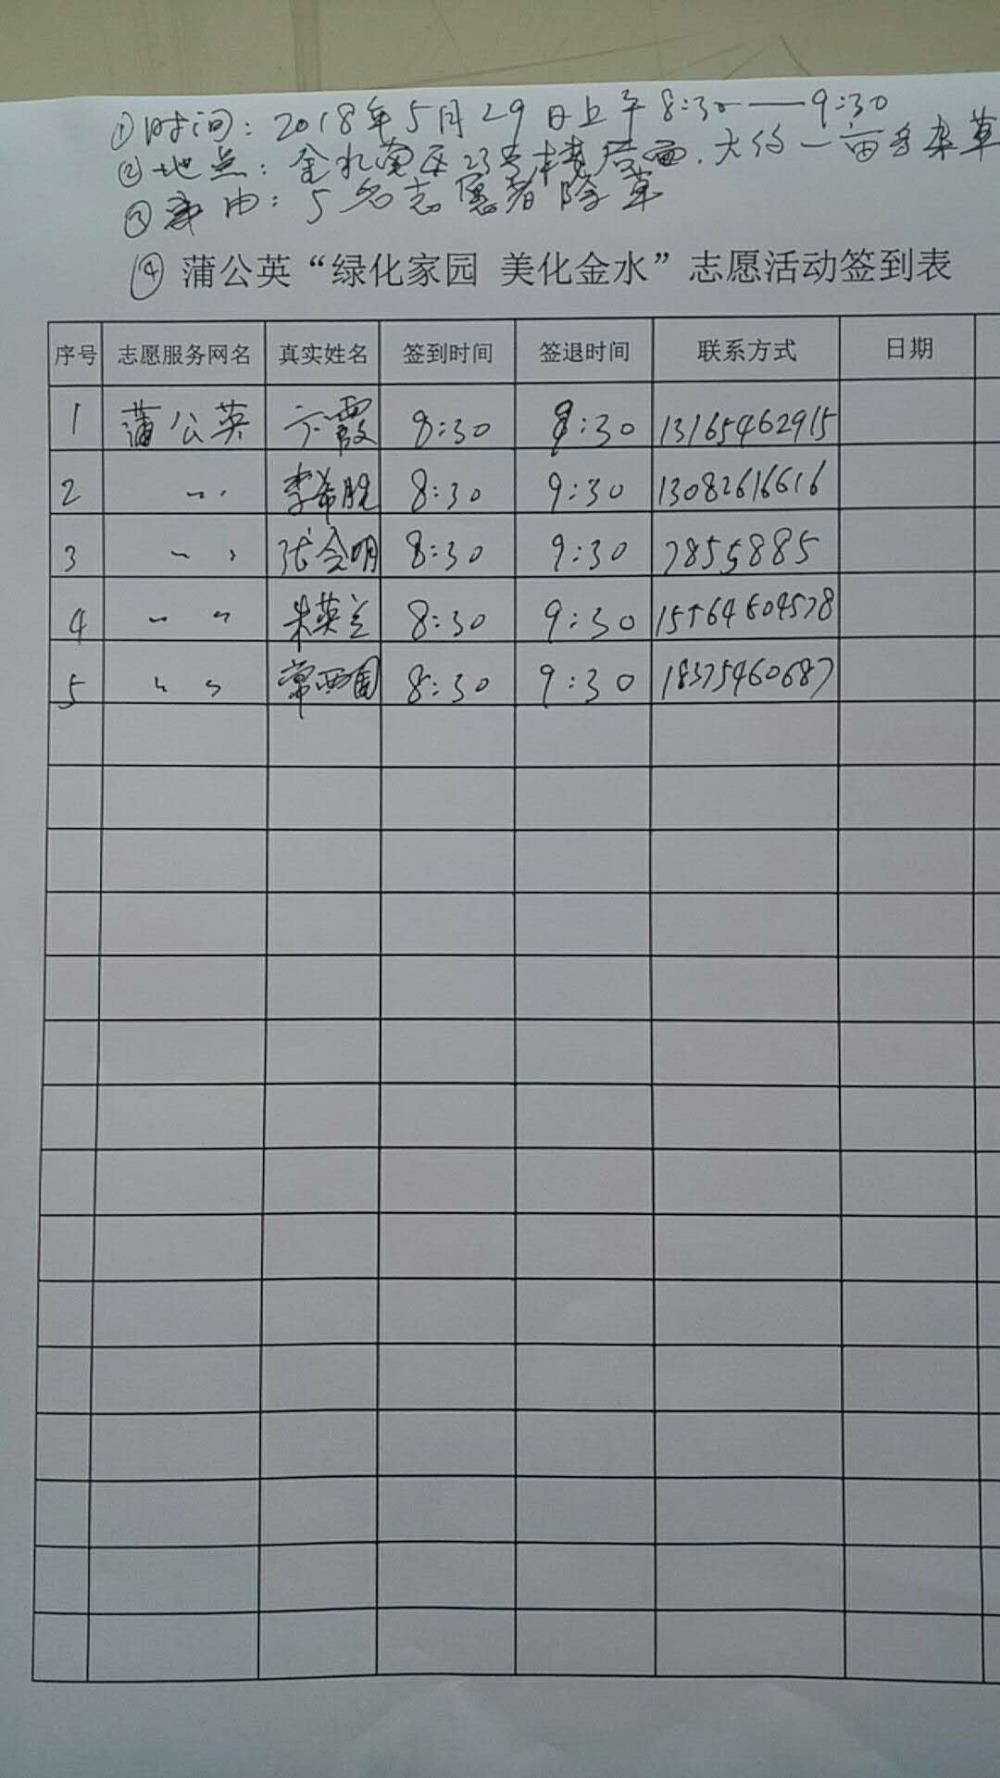 ①时间：2018年5月29日上午8:30——9:30
②地点：金水南区23号楼后面，大约一亩多杂草
③事由：5名志愿者除草
④ 蒲公英“绿化家园 美化金水”志愿活动签到表
序号 志愿服务网名 真实姓名 签到时间 签退时间 联系方式 日期
1 蒲公英 霞 8:30 9:30 13165462915
2 〃 李希 8:30 9:30 13082616616
3 〃 张会明 8:30 9:30 7855885
4 〃 朱英兰 8:30 9:30 15564604578
5 〃 常西国 8:30 9:30 18375460687